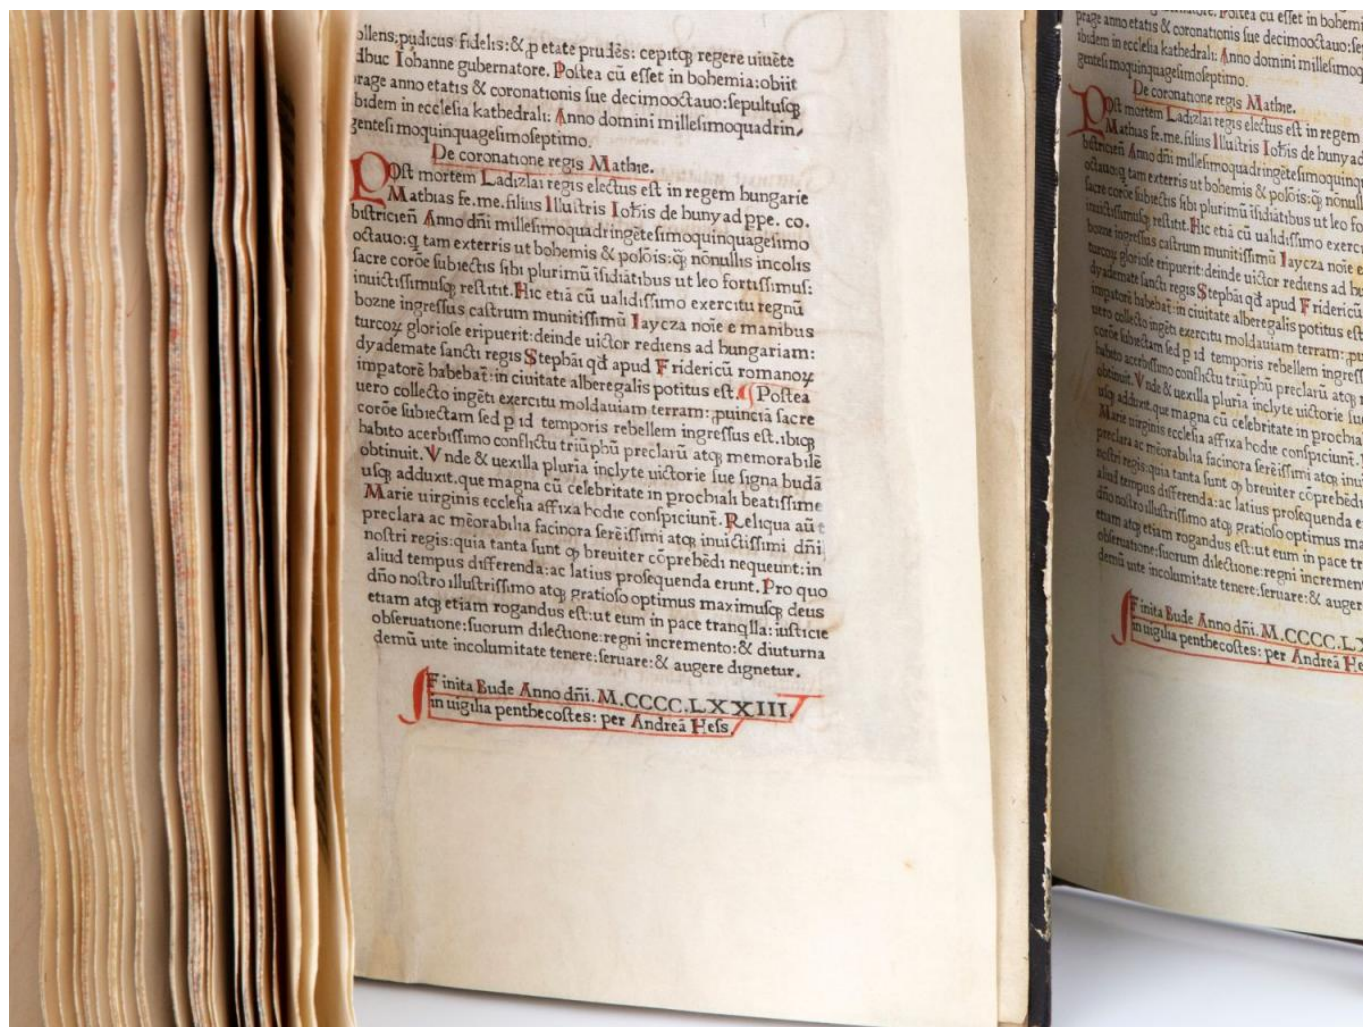 ollens, pudicus fidelis: & ꝓ etate prudēs: cepitqꝫ regere uiuēte
dhuc Iohanne gubernatore. Postea cū esset in bohemia: obiit
prage anno etatis & coronationis sue decimooctauo: sepultusqꝫ
ibidem in ecclesia kathedrali: Anno domini millesimoquadrin,
gentesimoquinquagesimoseptimo.
De coronatione regis Mathie.
POst mortem Ladizlai regis electus est in regem hungarie
Mathias fe. me. filius Illustris Iohis de hunyad ppe. co.
bistricieñ Anno dñi millesimoquadringētesimoquinquagesimo
octauo: q tam exterris ut bohemis & polōis: qꝫ nōnullis incolis
sacre corōe subiectis sibi plurimū īsidiātibus ut leo fortissimus:
inuictissimusqꝫ restitit. Hic etiā cū ualidissimo exercitu regnū
bozne ingressus castrum munitissimū Iaycza noīe e manibus
turcoꝝ gloriose eripuerit: deinde uictor rediens ad hungariam:
dyademate sancti regis Stephāi qd̄ apud Fridericū romanoꝝ
impatorē habebat̄: in ciuitate alberegalis potitus est. ¶ Postea
uero collecto ingēti exercitu moldauiam terram: ꝓuinciā sacre
corōe subiectam sed p id temporis rebellem ingressus est. ibiqꝫ
habito acerbissimo conflictu triūphū preclarū atqꝫ memorabilē
obtinuit. Vnde & uexilla pluria inclyte uictorie sue signa budā
usqꝫ adduxit. que magna cū celebritate in prochiali beatissime
Marie uirginis ecclesia affixa hodie conspiciunt̄. Reliqua aūt
preclara ac mēorabilia facinora serēissimi atqꝫ inuictissimi dñi
nostri regis: quia tanta sunt qꝫ breuiter cōprehēdi nequeunt: in
aliud tempus differenda: ac latius prosequenda erunt. Pro quo
dño nostro illustrissimo atqꝫ gratioso optimus maximusqꝫ deus
etiam atqꝫ etiam rogandus est: ut eum in pace tranqlla: iusticie
obseruatione: suorum dilectione: regni incremento: & diuturna
demū uite incolumitate tenere: seruare: & augere dignetur.
Finita Bude Anno dñi. M.CCCC.LXXIII.
in uigilia penthecostes: per Andreā Hess.
prage anno etatis & coronationis sue decimooctauo: se
ibidem in ecclesia kathedrali: Anno domini millesimoq
gentesimoquinquagesimoseptimo.
De coronatione regis Mathie.
POst mortem Ladizlai regis electus est in regem
Mathias fe. me. filius Illustris Iohis de hunyad
bistricieñ Anno dñi millesimoquadringētesimoquinq
octauo: q tam exterris ut bohemis & polōis: qꝫ nonull
sacre corōe subiectis sibi plurimū īsidiātibus ut leo fo
inuictissimusqꝫ restitit. Hic etiā cū ualidissimo exerc
bozne ingressus castrum munitissimū Iaycza noīe e
turcoꝝ gloriose eripuerit: deinde uictor rediens ad hu
dyademate sancti regis Stephāi qd̄ apud Fridericū
impatorē habebat̄: in ciuitate alberegalis potitus est
uero collecto ingēti exercitu moldauiam terram: ꝓui
corōe subiectam sed p id temporis rebellem ingress
habito acerbissimo conflictu triūphū preclarū atqꝫ
obtinuit. Vnde & uexilla pluria inclyte uictorie su
usqꝫ adduxit. que magna cū celebritate in prochia
Marie uirginis ecclesia affixa hodie conspiciunt̄.
preclara ac mēorabilia facinora serēissimi atqꝫ inu
nostri regis: quia tanta sunt qꝫ breuiter cōprehēdi
aliud tempus differenda: ac latius prosequenda e
dño nostro illustrissimo atqꝫ gratioso optimus ma
etiam atqꝫ etiam rogandus est: ut eum in pace tr
obseruatione: suorum dilectione: regni incremen
demū uite incolumitate tenere: seruare: & auger
Finita Bude Anno dñi. M.CCCC.LX
in uigilia penthecostes: per Andreā He